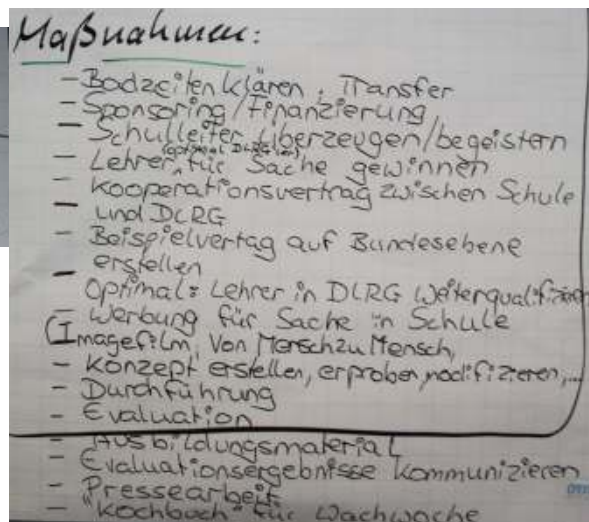 Maßnahmen:
- Badzeiten klären, Transfer
- Sponsoring/Finanzierung
- Schulleiter überzeugen/begeistern
(optimal DLRGler)
- Lehrer für Sache gewinnen
- Kooperationsvertrag zwischen Schule
und DLRG
- Beispielvertag auf Bundesebene
erstellen
- Optimal: Lehrer in DLRG weiterqualifizieren
- Werbung für Sache in Schule
(Imagefilm, Von Mensch zu Mensch,
- Konzept erstellen, erproben, modifizieren,...
- Durchführung
- Evaluation
- Ausbildungsmaterial
- Evaluationsergebnisse kommunizieren
- Pressearbeit
- "Kochbuch" für Wachwoche